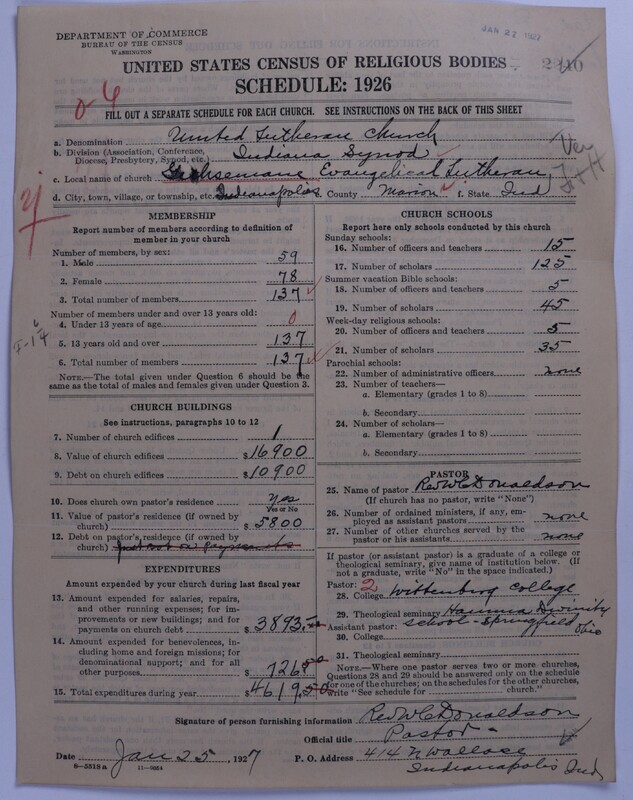 DEPARTMENT OF COMMERCE
BUREAU OF THE CENSUS
WASHINGTON
JAN 27 1927
UNITED STATES CENSUS OF RELIGIOUS BODIES
SCHEDULE: 1926
FILL OUT A SEPARATE SCHEDULE FOR EACH CHURCH. SEE INSTRUCTIONS ON THE BACK OF THIS SHEET
a. Denomination United Lutheran Church
b. Division (Association, Conference, Diocese, Presbytery, Synod, etc.) Indiana Synod
c. Local name of church Gethsemane Evangelical Lutheran
d. City, town, village, or township, etc. Indianapolis e. County Marion f. State Ind
MEMBERSHIP
Report number of members according to definition of member in your church
Number of members, by sex:
1. Male 59
2. Female 78
3. Total number of members 137
Number of members under and over 13 years old:
4. Under 13 years of age 0
5. 13 years old and over 137
6. Total number of members 137
NOTE.—The total given under Question 6 should be the same as the total of males and females given under Question 3.
CHURCH BUILDINGS
See instructions, paragraphs 10 to 12
7. Number of church edifices 1
8. Value of church edifices $16900
9. Debt on church edifices $10900
10. Does church own pastor's residence Yes
Yes or No
11. Value of pastor's residence (if owned by church) $5800
12. Debt on pastor's residence (if owned by church)
EXPENDITURES
Amount expended by your church during last fiscal year
13. Amount expended for salaries, repairs, and other running expenses; for improvements or new buildings; and for payments on church debt $3893.
14. Amount expended for benevolences, including home and foreign missions; for denominational support; and for all other purposes $726
15. Total expenditures during year $4619.50
CHURCH SCHOOLS
Report here only schools conducted by this church
Sunday schools:
16. Number of officers and teachers 15
17. Number of scholars 125
Summer vacation Bible schools:
18. Number of officers and teachers 5
19. Number of scholars 45
Week-day religious schools:
20. Number of officers and teachers 5
21. Number of scholars 35
Parochial schools:
22. Number of administrative officers none
23. Number of teachers—
a. Elementary (grades 1 to 8)
b. Secondary
24. Number of scholars—
a. Elementary (grades 1 to 8)
b. Secondary
PASTOR
25. Name of pastor Rev W C Donaldson
(If church has no pastor, write "None")
26. Number of ordained ministers, if any, employed as assistant pastors none
27. Number of other churches served by the pastor or his assistants none
If pastor (or assistant pastor) is a graduate of a college or theological seminary, give name of institution below. (If not a graduate, write "No" in the space indicated.)
Pastor: 2
28. College Wittenberg College
29. Theological seminary Hamma Divinity
Assistant pastor: School - Springfield Ohio
30. College
31. Theological seminary
NOTE.—Where one pastor serves two or more churches, Questions 28 and 29 should be answered only on the schedule for one of the churches; on the schedules for the other churches, write "See schedule for church."
Signature of person furnishing information Rev W C Donaldson
Official title Pastor
Date Jan 25, 1927 P. O. Address 414 N Wallace
Indianapolis Ind
8—5519 a 11—9554